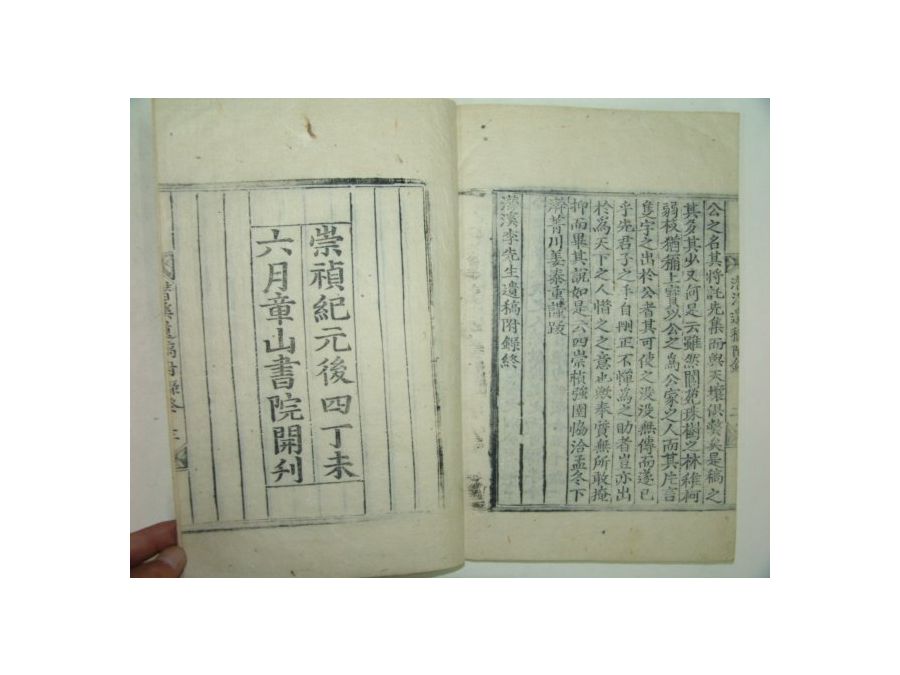 公之名其將託先集而與天壤俱弊矣是稿之
其多其少又何是云雖然閬苑珠樹之林雖柯
弱枝猶稱上寶以公之爲公家之人而其片言
隻字之出於公者其可使之没没無傳而遂已
乎先君子之手自刪正不憚爲之助者豈亦出
於爲天下之人惜之之意也歟奉賢無所敢掩
抑而畢其說如是云四崇禎強圉協洽孟冬下
澣菁川姜泰重謹跋
溪李先生遺稿附錄終
崇禎紀元後四丁未
六月章山書院開刋